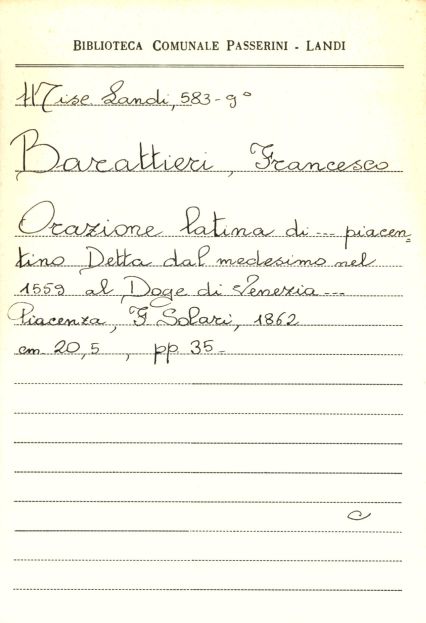 BIBLIOTECA COMUNALE PASSERINI - LANDI
Misc. Landi, 583-9°
Barattieri, Francesco
Orazione latina di ... piacen=
tino Detta dal medesimo nel
1559 al Doge di Venezia ...
Piacenza, F Solari, 1862
cm. 20,5 , pp 35-
c